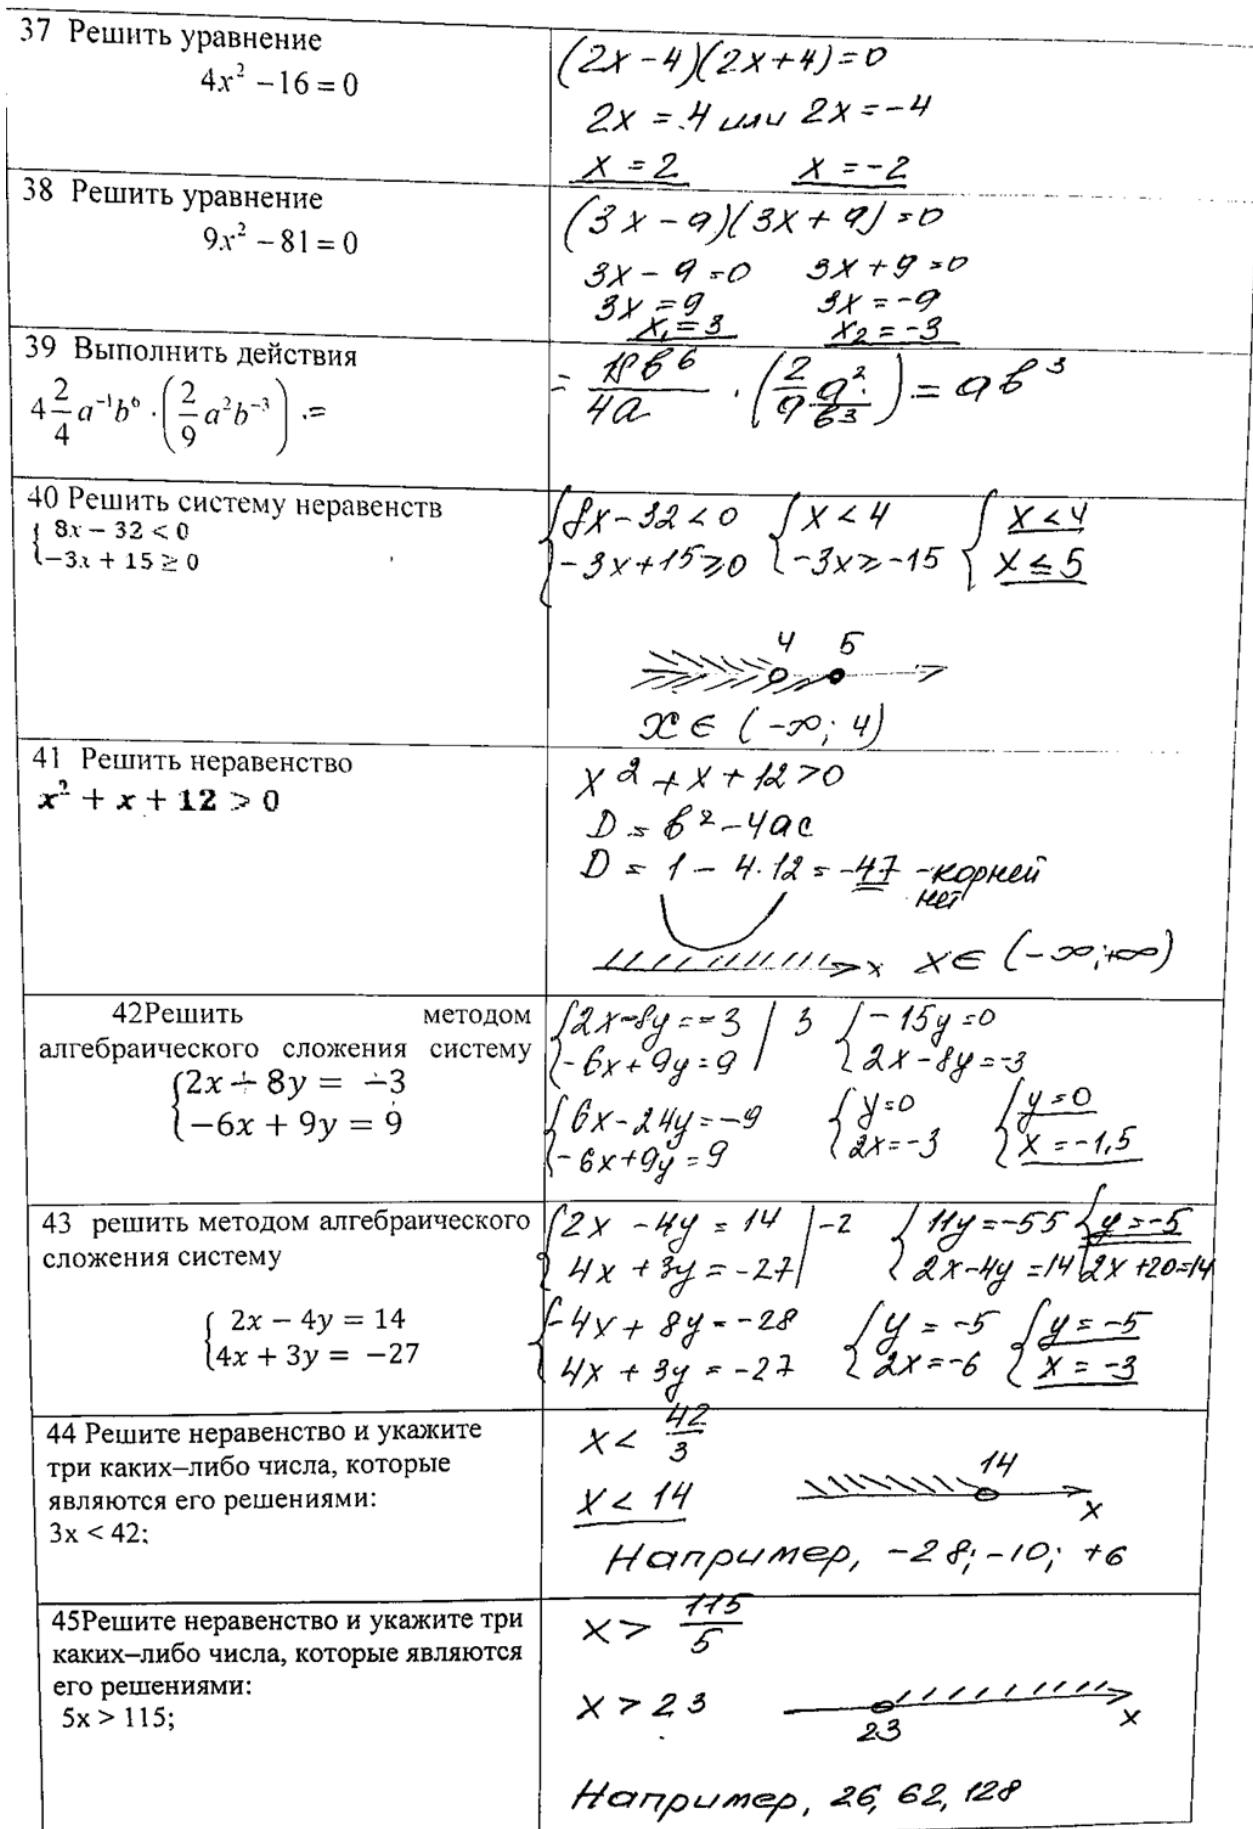 37 Решить уравнение
4x² – 16 = 0
(2x-4)(2x+4)=0
2x = 4 или 2x = -4
x = 2 x = -2
38 Решить уравнение
9x² – 81 = 0
(3x-9)(3x+9)=0
3x-9=0 3x+9=0
3x=9 3x=-9
x₁=3 x₂=-3
39 Выполнить действия
4 2/4 a⁻¹b⁶ · (2/9 a²b⁻³) .=
= 18b⁶/4a · (2/9 a²/b³) = ab³
40 Решить систему неравенств
{ 8x – 32 < 0
{ –3x + 15 ≥ 0
{ 8x-32<0 { x<4 { x<4
{ -3x+15⩾0 { -3x⩾-15 { x≤5
4 5
x ∈ (-∞; 4)
41 Решить неравенство
x² + x + 12 > 0
x²+x+12>0
D = b²-4ac
D = 1 - 4·12 = -47 - корней
нет
x x ∈ (-∞;+∞)
42Решить методом
алгебраического сложения систему
{ 2x – 8y = –3
{ –6x + 9y = 9
{ 2x-8y=-3 | 3 { -15y=0
{ -6x+9y=9 | { 2x-8y=-3
{ 6x-24y=-9 { y=0 { y=0
{ -6x+9y=9 { 2x=-3 { x=-1,5
43 решить методом алгебраического
сложения систему
{ 2x – 4y = 14
{ 4x + 3y = –27
{ 2x -4y = 14 | -2 { 11y=-55 { y=-5
{ 4x +3y = -27 | { 2x-4y=14 { 2x+20=14
{ -4x + 8y = -28 { y = -5 { y = -5
{ 4x + 3y = -27 { 2x=-6 { x = -3
44 Решите неравенство и укажите
три каких–либо числа, которые
являются его решениями:
3x < 42;
x < 42/3
x < 14 14
x
Например, -28; -10; +6
45Решите неравенство и укажите три
каких–либо числа, которые являются
его решениями:
5x > 115;
x > 115/5
x > 23 23 x
Например, 26, 62, 128